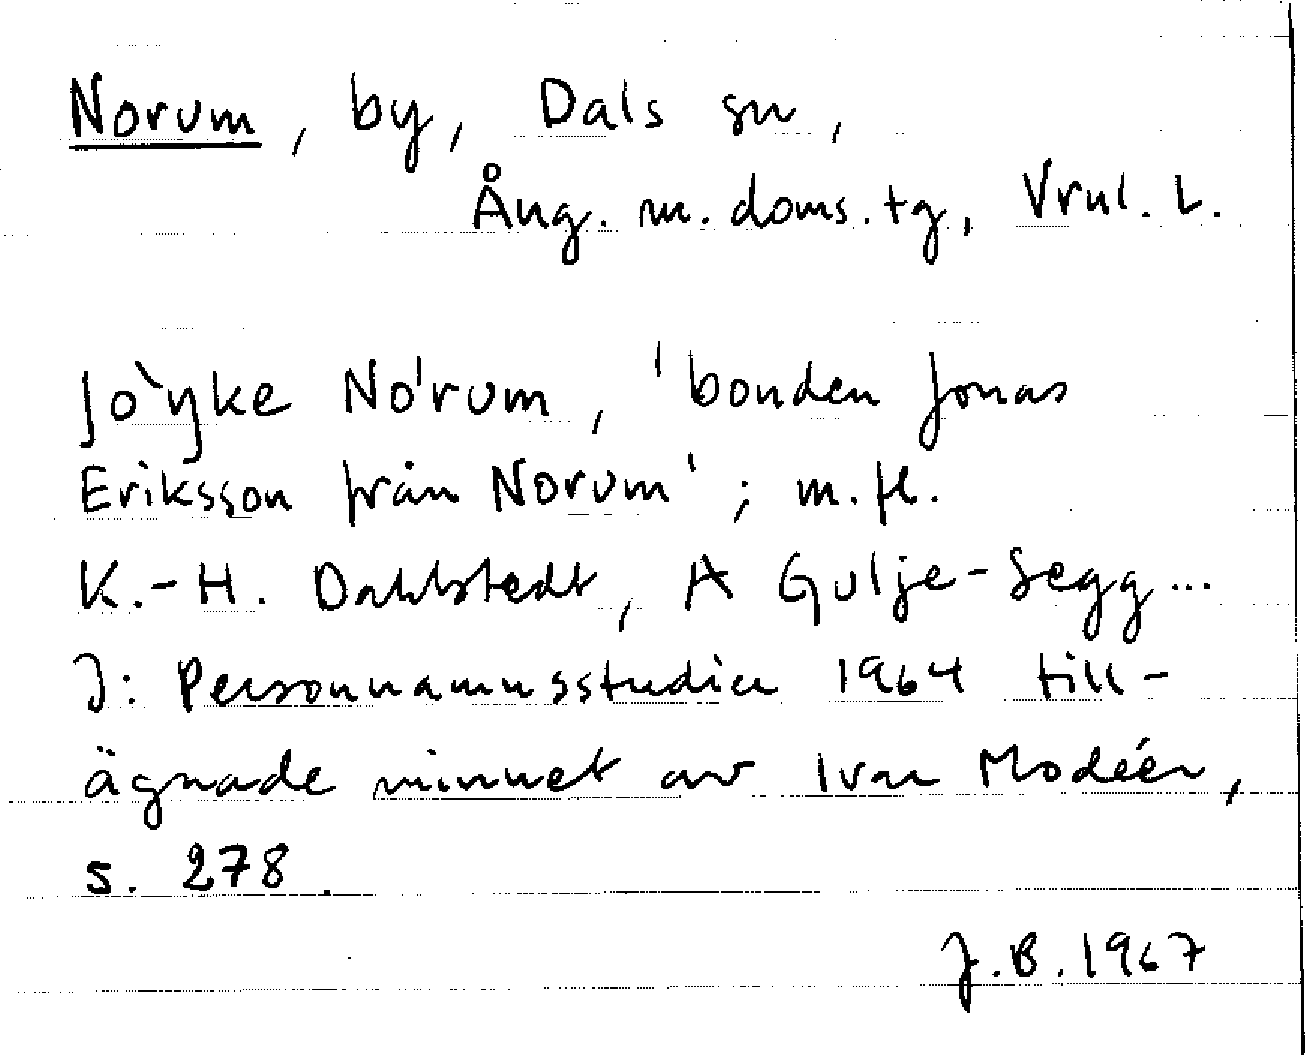 Norum, by, Dals sn,
Ång. m. doms. tg, Vrnl. L.
Jo`ŋke No'rum, 'bonden Jonas
Eriksson från Norum'; m.fl.
K.-H. Dahlstedt, A Gulje-Segg...
I: Personnamnsstudier 1964 till-
ägnade minnet av Ivar Modéer,
s. 278.
J.B. 1967